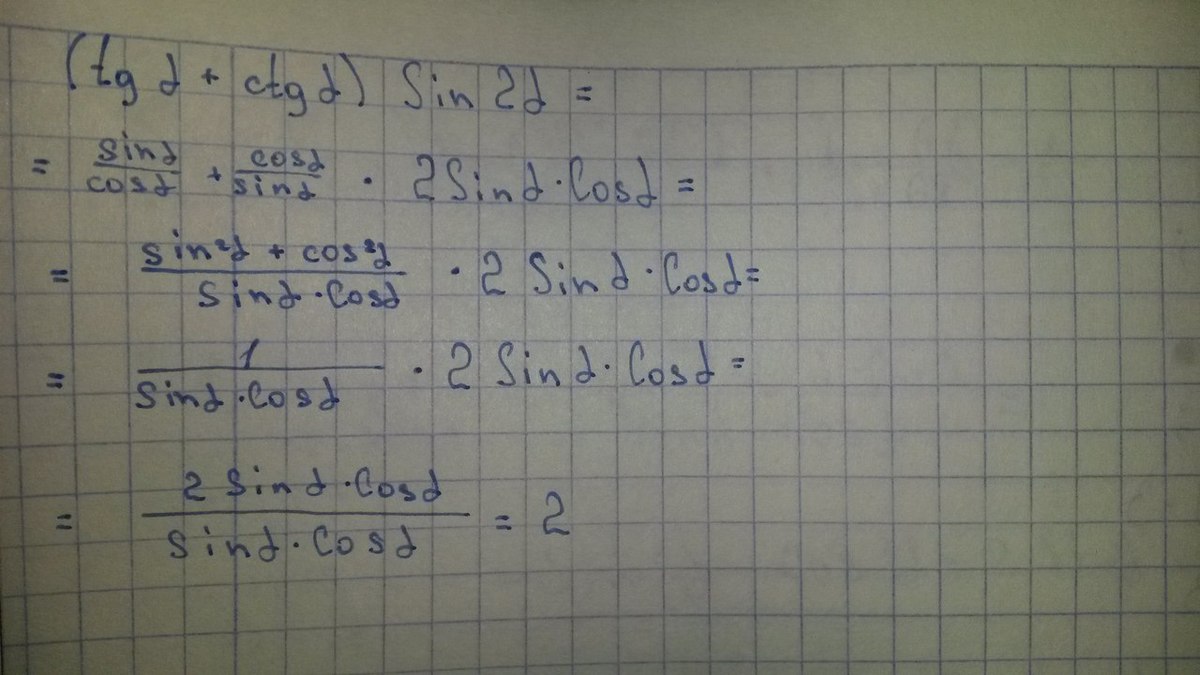 (tg α + ctg α) Sin 2α =
= sinα/cosα + cosα/sinα · 2Sinα·Cosα =
= sin²α + cos²α / Sinα·Cosα · 2 Sinα·Cosα =
= 1 / Sinα·Cosα · 2 Sinα·Cosα =
= 2 Sinα·Cosα / Sinα·Cosα = 2